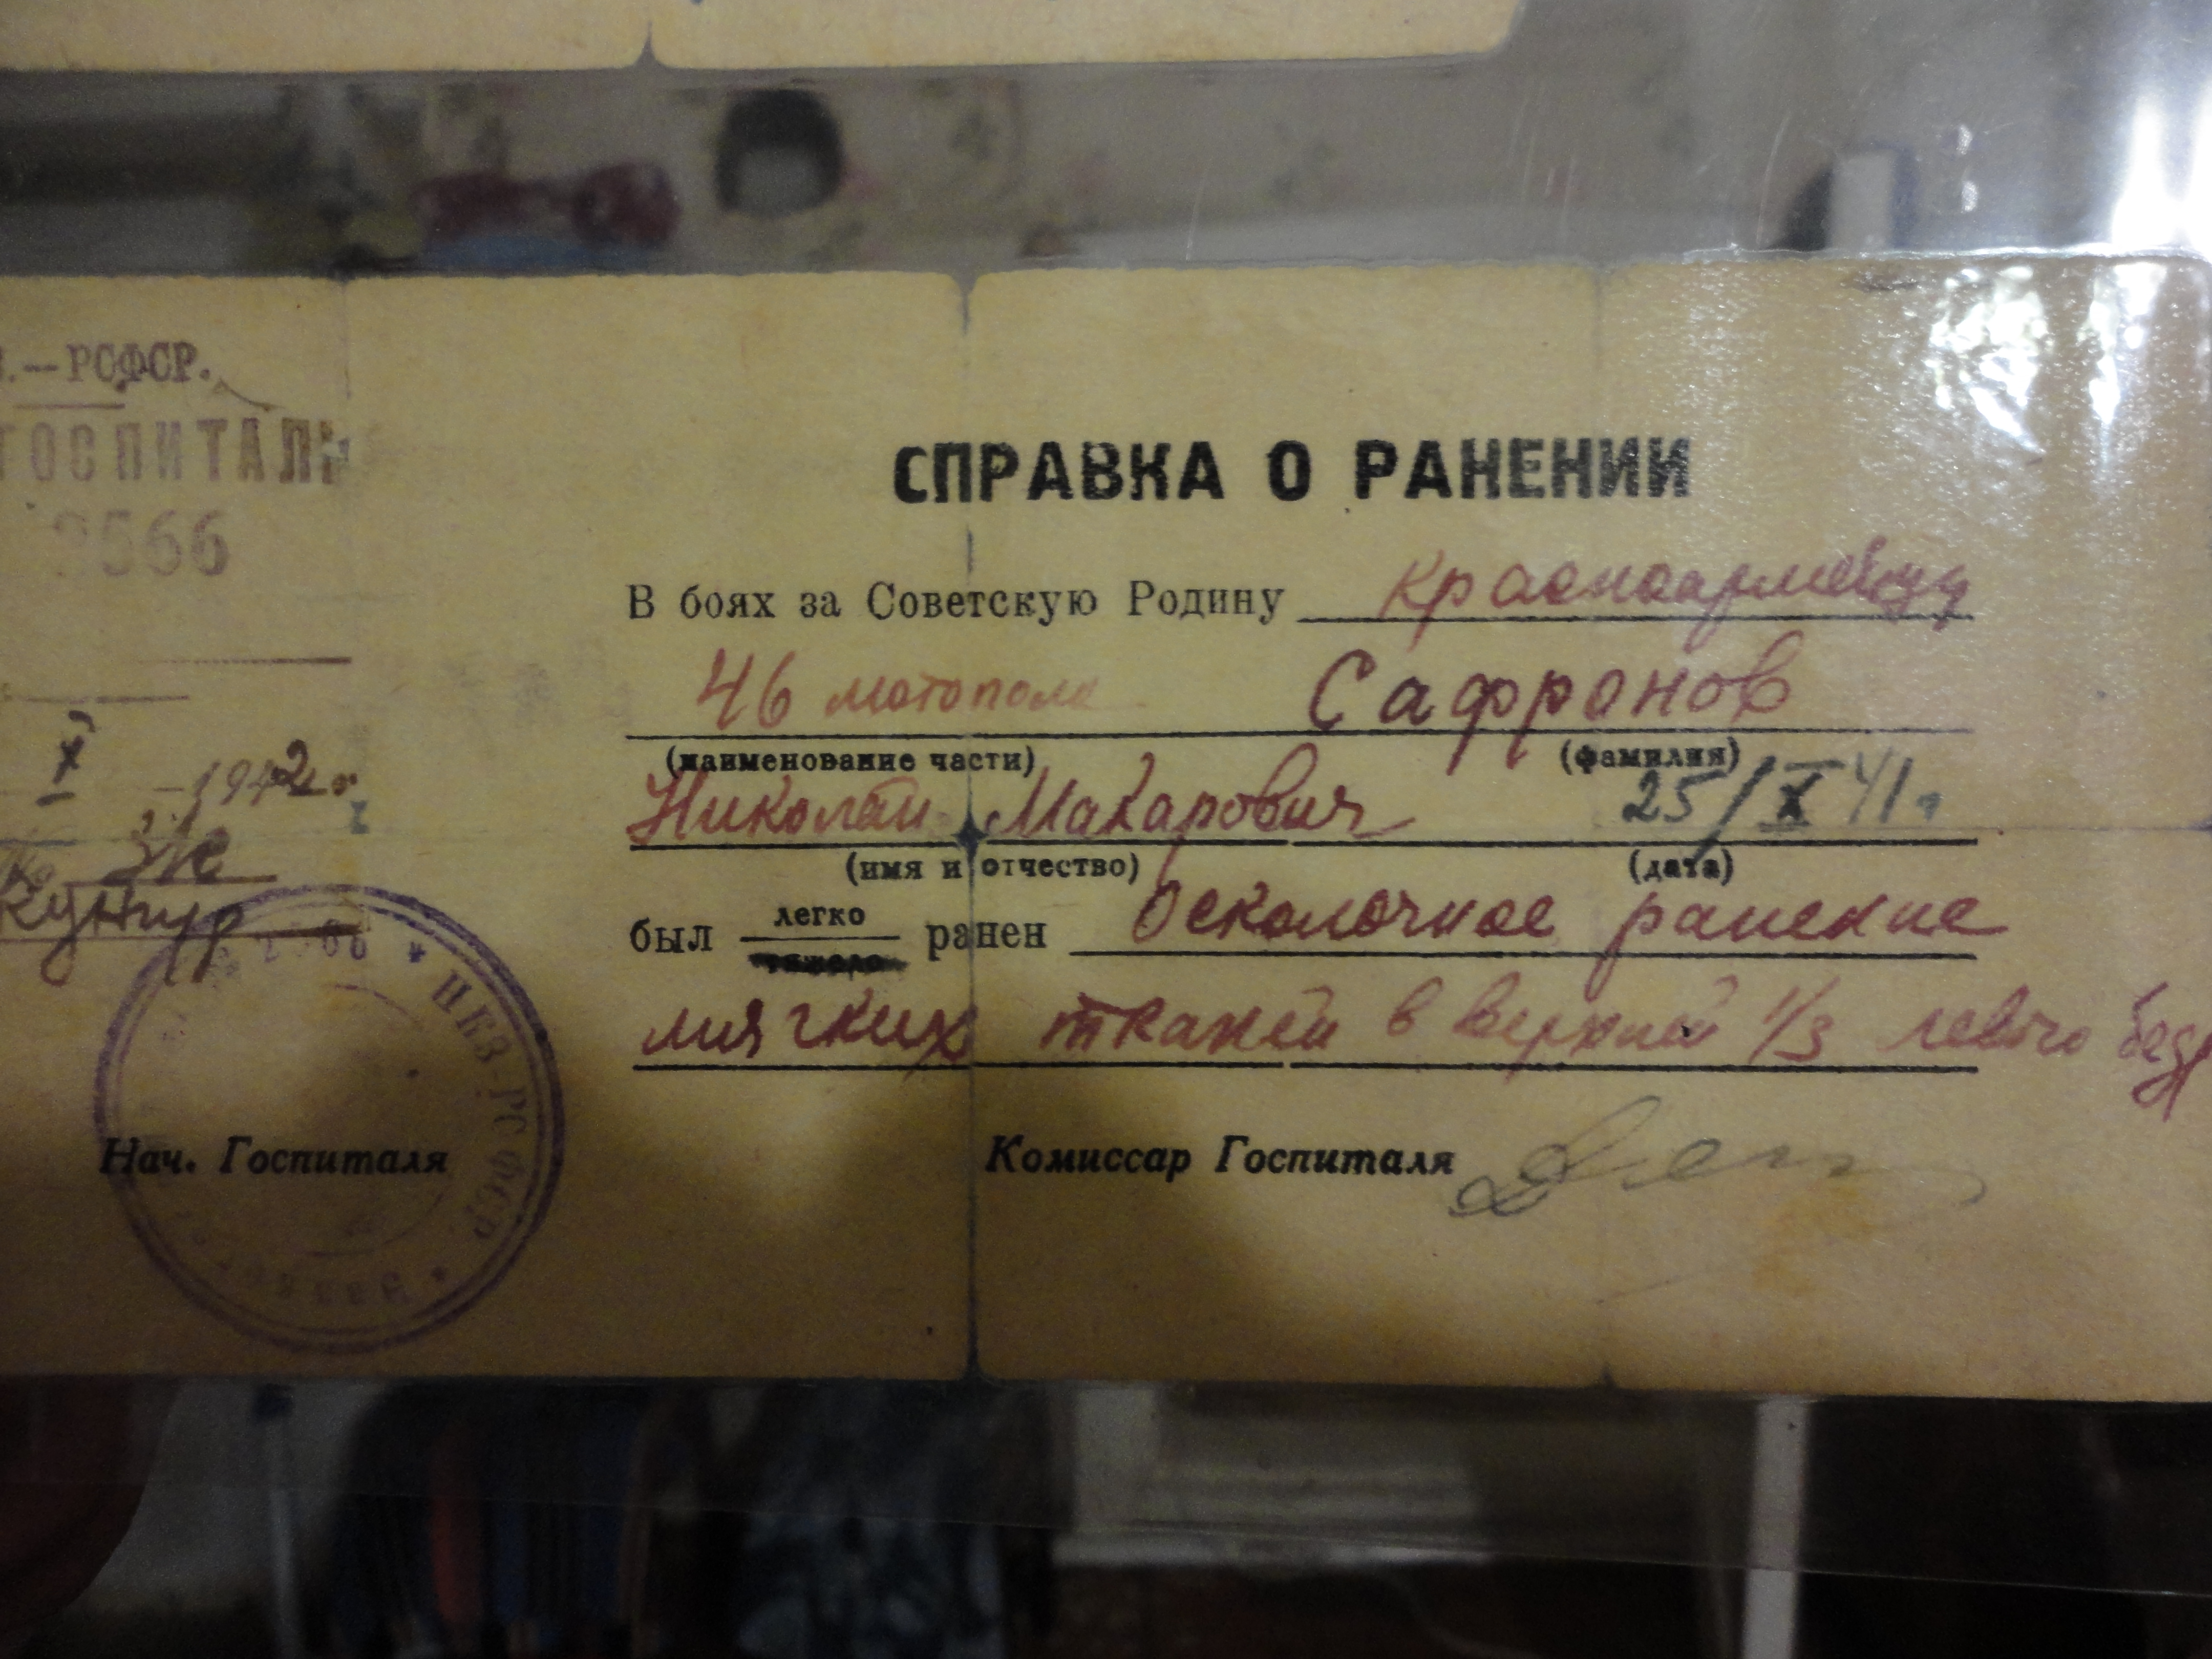 —РСФСР.
ГОСПИТАЛЬ
3566
X 1942 г.
Кунгур
СПРАВКА О РАНЕНИИ
В боях за Советскую Родину красноармеец
46 мотополк Сафронов
(наименование части) (фамилия)
Николай Макарович 25/X 41 г
(имя и отчество) (дата)
был легко ранен Осколочное ранение
тяжело
мягких тканей в верхней 1/3 левого бедр
НКЗ-РСФСР
Нач. Госпиталя Комиссар Госпиталя